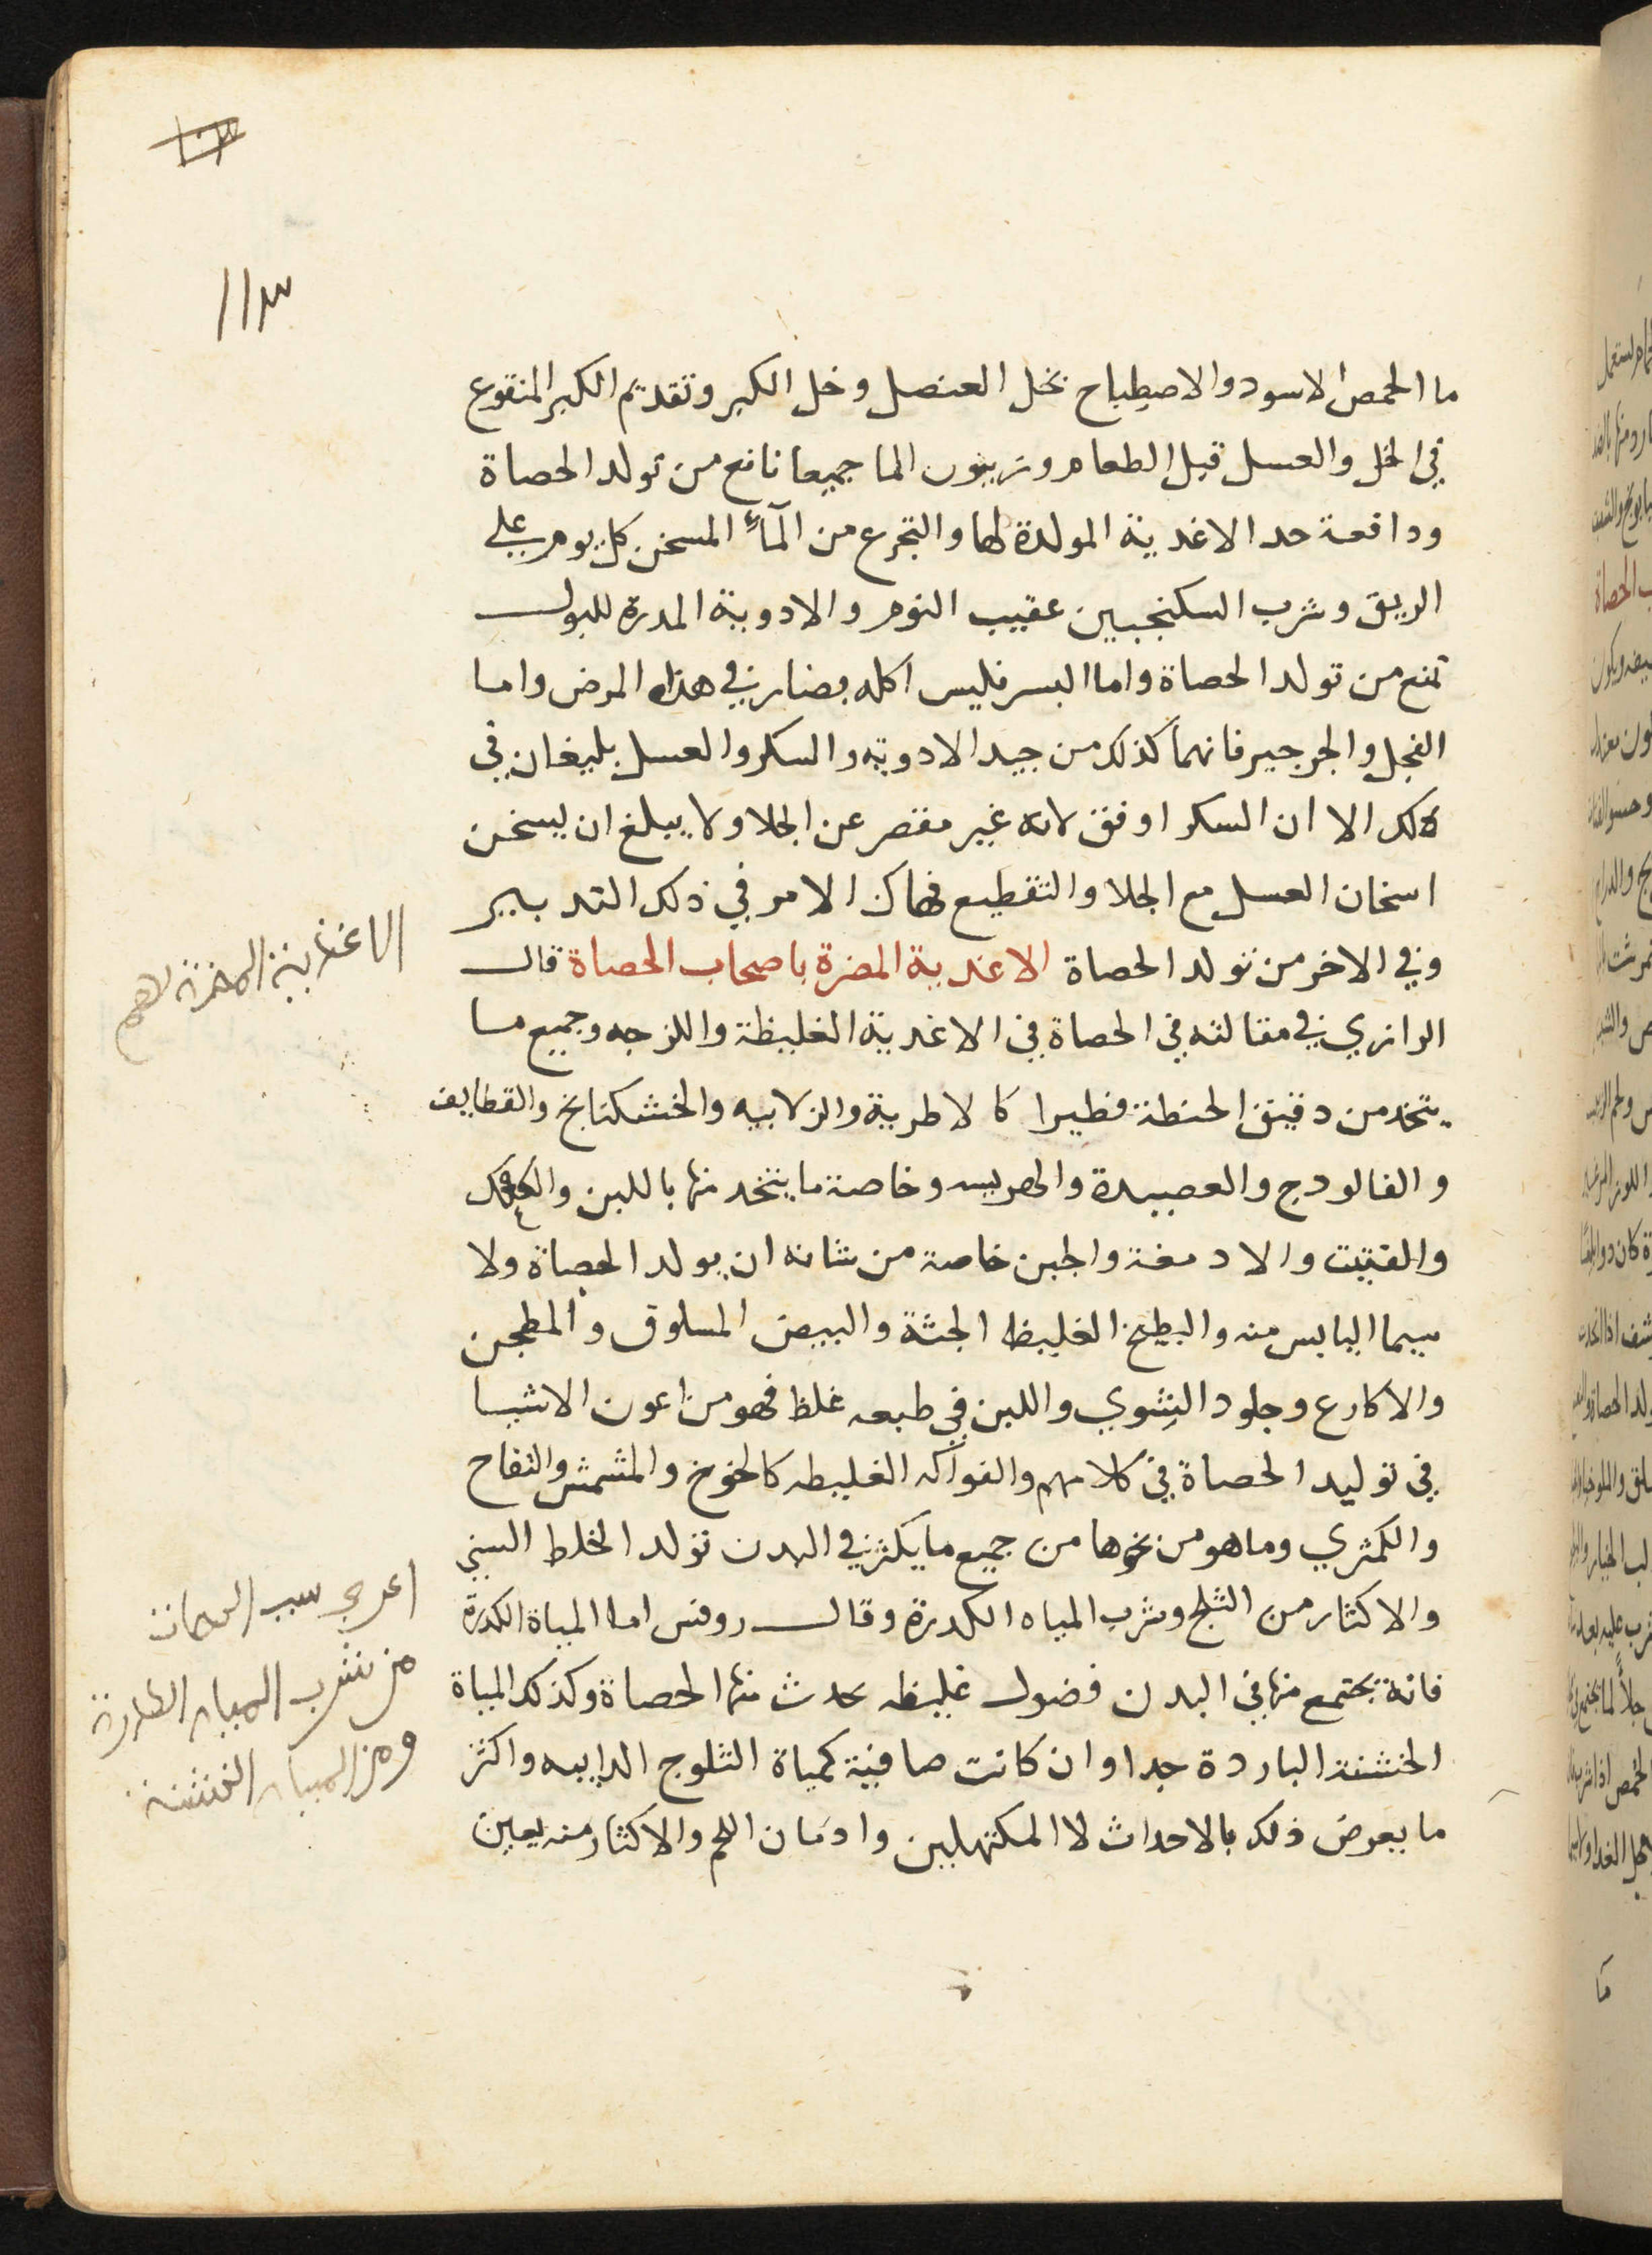 ما الحمص الاسود والاصطباح بخل العنصل وخل الكبر وتقديم الكبر المنقوع
في الخل والعسل قبل الطعام وزيتون الما جميعا نافع من تولد الحصاة
ودافعة حد الاغدية المولدة لها والتجرع من المآء المسخن كل يوم على
الريق وشرب السكنجبين عقيب النوم والادوية المدرة للبول
تمنع من تولد الحصاة واما البسر فليس اكله بضار في هذا المرض واما
الفجل والجرجير فانهما كذلك من جيد الادوية والسكر والعسل بليغان في
ذلك الا ان السكر اوفق لانه غير مقصر عن الجلا ولا يبلغ ان يسخن
اسخان العسل مع الجلا والتقطيع فهاك الامر في ذلك التدبير
وفي الاخر من تولد الحصاة الاغدية المضرة باصحاب الحصاة قال
الرازي في مقالته في الحصاة في الاغدية الغليظة واللزجه وجميع ما
يتخد من دقيق الحنطة فطيرا كالاطرية والزلابيه والخشكنانج والقطايف
والفالودج والعصيدة والهريسه وخاصة ما يتخد منها باللبن والكعك
والفتيت والادمغة والجبن خاصة من شانه ان يولد الحصاة ولا
سيما اليابس منه والبطيخ الغليظ الجثة والبيض المسلوق والمطجن
والاكارع وجلود الشوي واللبن في طبعه غلظ فهو من اعون الاشيا
في توليد الحصاة في كلامهم والفواكه الغليطه كالخوخ والمشمش والتفاح
والكمثري وما هو من نحوها من جميع ما يكثر في البدن تولد الخلط الني
والاكثار من الثلج وشرب المياه الكدرة وقال روفس اما المياة الكدرة
فانة يجتمع منها في البدن فضول غليظه يحدث منها الحصاة وكذلك المياة
الخشنة الباردة جدا وان كانت صافية كمياة الثلوج الدايبه واكثر
ما يعرض ذلك بالاحداث لا المكتهلين وادمان اللحم والاكثار منه يعين
الاغذية المضرة لهم
من شرب المياه الكدرة
ومن المياه الخشنة